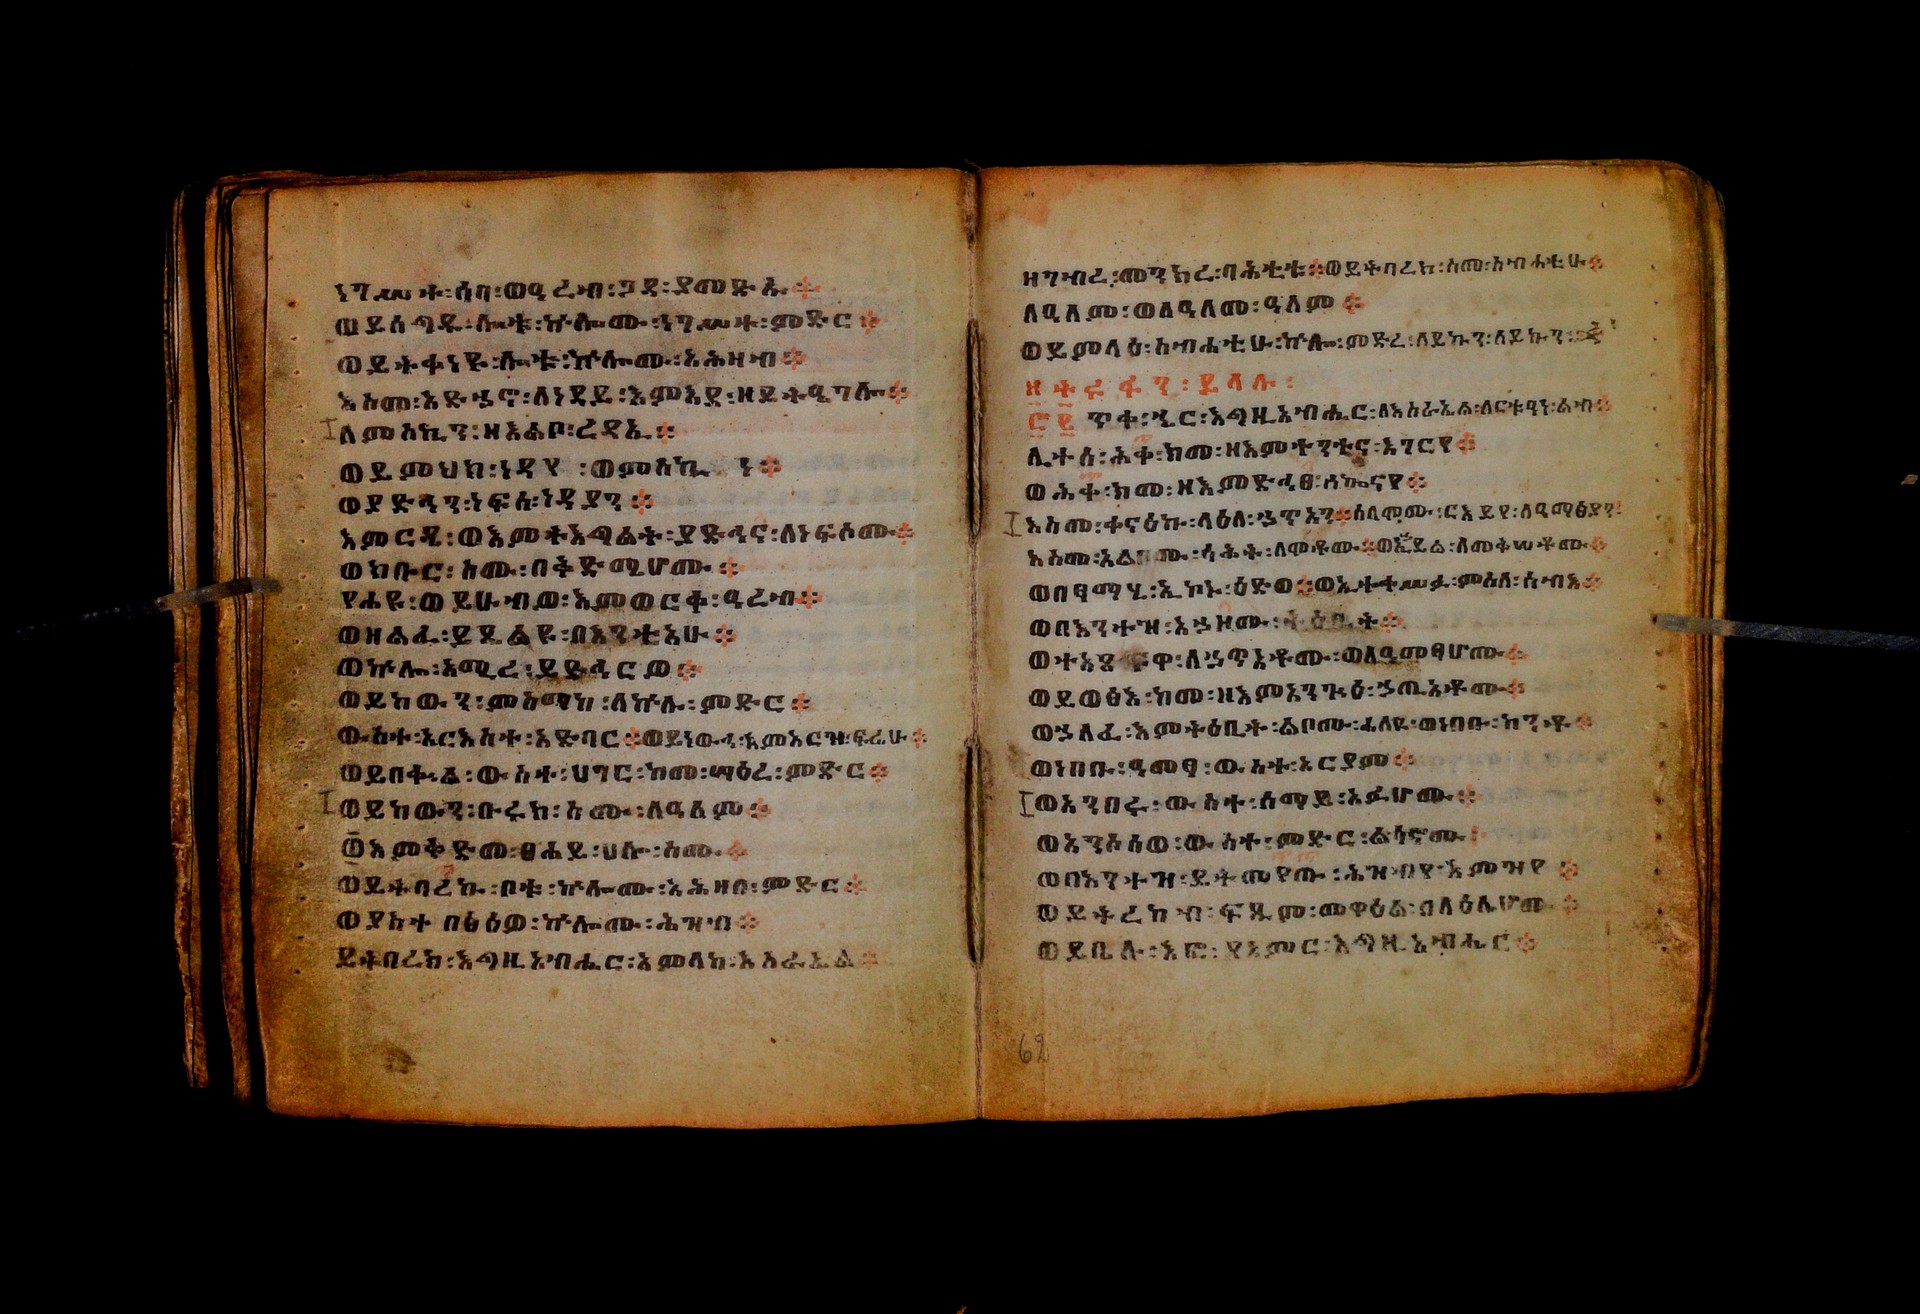 ነገሥተ፡ሳባ፡ወዓረብ፡ጋዳ፡ያመጽኡ፨
ወይሰግዱ፡ሎቱ፡ኵሎሙ፡ነገሥተ፡ምድር፨
ወይትቀነዩ፡ሎቱ፡ኵሎሙ፡አሕዛብ፨
እስመ፡አድኃኖ፡ለነዳይ፡እምእደ፡ዘይትዔገሎ፨
ለምስኪን፡ዘአልቦ፡ረዳኢ፨
ወይምህክ፡ነዳየ፡ወምስኪነ፨
ወያድኅን፡ነፍሰ፡ነዳያን፨
እምርዴ፡ወእምትእግልት፡ያድኅና፡ለነፍሶሙ፨
ወክቡር፡ስሙ፡በቅድሜሆሙ፨
የሐዩ፡ወይሁብዎ፡እምወርቀ፡ዓረብ፨
ወዘልፈ፡ይጼልዩ፡በእንቲአሁ፨
ወኵሎ፡አሚረ፡ይድኅርዎ፨
ወይከውን፡ምስማክ፡ለኵሉ፡ምድር፨
ውስተ፡አርእስተ፡አድባር፨ወይነውኅ፡እምአርዝ፡ፍሬሁ፨
ወይበቍል፡ውስተ፡ሀገር፡ከመ፡ሣዕረ፡ምድር፨
ወይከውን፡ቡሩክ፡ስሙ፡ለዓለም፨
እምቅድመ፡ፀሐይ፡ሀሎ፡ስሙ፨
ወይትባረኩ፡ቦቱ፡ኵሎሙ፡አሕዛበ፡ምድር፨
ወያስተበፅዕዎ፡ኵሎሙ፡ሕዝብ፨
ይትባረክ፡እግዚአብሔር፡አምላከ፡እስራኤል፨
ዘገብረ፡መንክረ፡ባሕቲቱ፨ወይትባረክ፡ስመ፡ስብሐቲሁ፨
ለዓለም፡ወለዓለመ፡ዓለም፨
ወይምላዕ፡ስብሐቲሁ፡ኵሎ፡ምድረ፡ለይኩን፡ለይኩን፨
ዘተርፋን፡ይላሉ፡
ጥቀ፡ኄር፡እግዚአብሔር፡ለእስራኤል፡ለርቱዓነ፡ልብ፨
ሊተሰ፡ሕቀ፡ከመ፡ዘእምተንተና፡እገርየ፨
ወሕቀ፡ከመ፡ዘእምድኅፀ፡ሰኰናየ፨
እስመ፡ቀናዕኩ፡ላዕለ፡ኃጥአን፨ሰላሞሙ፡ርእይየ፡ለዓማፅያን፨
እስመ፡አልቦሙ፡ሳሕት፡ለሞቶሙ፨ወኢይል፡ለመቅሠፍቶሙ፨
ወበፃማሂ፡ኢኮኑ፡ዕድወ፨ወኢተቀሥፉ፡ምስለ፡ሰብእ፨
ወበእንተዝ፡አኃዞሙ፡ትዕቢት፨
ወተአጽፍዋ፡ለኃጥአቶሙ፡ወለዓመፃሆሙ፨
ወይወፅእ፡ከመ፡ዘእምአንጉዕ፡ኃጢአቶሙ፨
ወኃለፈ፡እምትዕቢት፡ልቦሙ፡ፈለዩ፡ወነበቡ፡ከንቶ፨
ወነበቡ፡ዓመፃ፡ውስተ፡አርያም፨
ወአንበሩ፡ውስተ፡ሰማይ፡አፉሆሙ፨
ወአንሶሰወ፡ውስተ፡ምድር፡ልሳኖሙ፨
ወበእንተዝ፡ይትመየጡ፡ሕዝብየ፡እምዝየ፨
ወይትረከብ፡ፍጹም፡መዋዕል፡በላዕሌሆሙ፨
ወይቤሉ፡እፎ፡ያአምር፡እግዚአብሔር፨
62